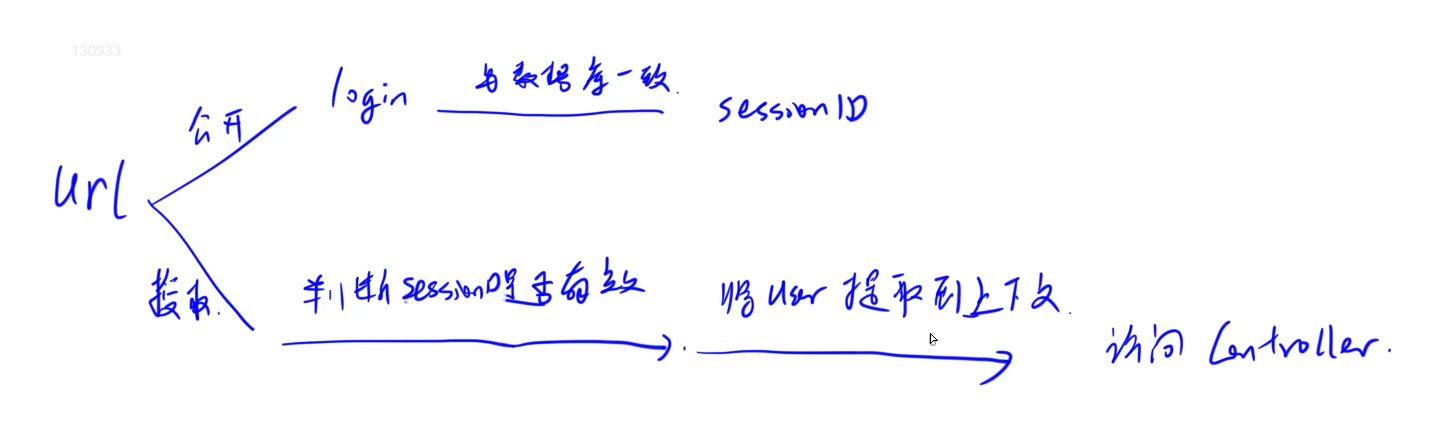 130933
login
与数据库一致.
sessionID
公开
url
授权.
判断sessionID是否有效
将user提取到上下文.
访问Controller.